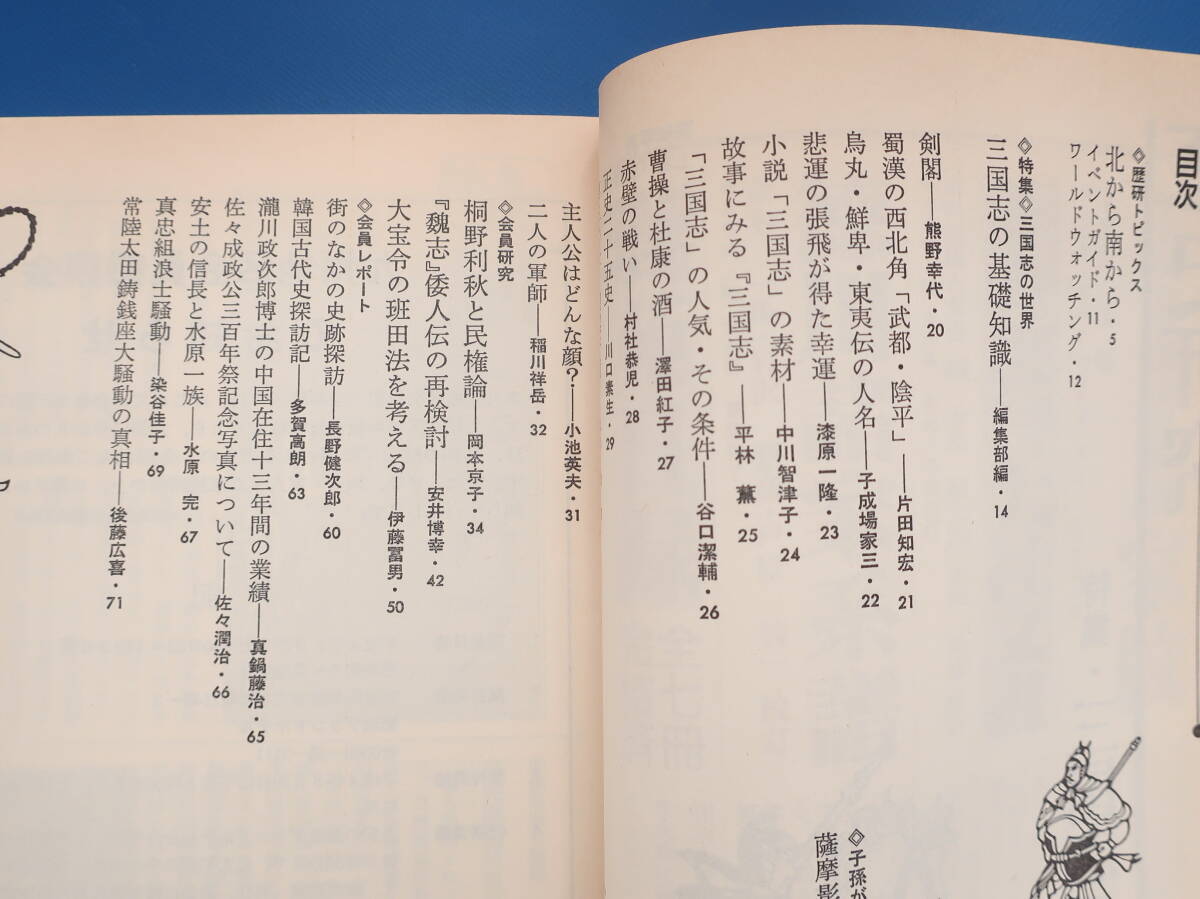 目次
◇歴研トピックス
北から南から・5
イベントガイド・11
ワールドウォッチング・12
◇特集◇三国志の世界
三国志の基礎知識――編集部編・14
剣閣――熊野幸代・20
蜀漢の西北角「武都・陰平」――片田知宏・21
烏丸・鮮卑・東夷伝の人名――子成場家三・22
悲運の張飛が得た幸運――漆原一隆・23
小説「三国志」の素材――中川智津子・24
故事にみる『三国志』――平林 薫・25
「三国志」の人気・その条件――谷口潔輔・26
曹操と杜康の酒――澤田紅子・27
赤壁の戦い――村社恭児・28
正史二十五史――川口素生・29
主人公はどんな顔?――小池英夫・31
二人の軍師――稲川祥岳・32
◇会員研究
桐野利秋と民権論――岡本京子・34
『魏志』倭人伝の再検討――安井博幸・42
大宝令の班田法を考える――伊藤冨男・50
◇会員レポート
街のなかの史跡探訪――長野健次郎・60
韓国古代史探訪記――多賀高朗・63
瀧川政次郎博士の中国在住十三年間の業績――真鍋藤治・65
佐々成政公三百年祭記念写真について――佐々潤治・66
安土の信長と水原一族――水原 完・67
真忠組浪士騒動――染谷佳子・69
常陸太田鋳銭座大騒動の真相――後藤広喜・71
◇子孫が
薩摩影